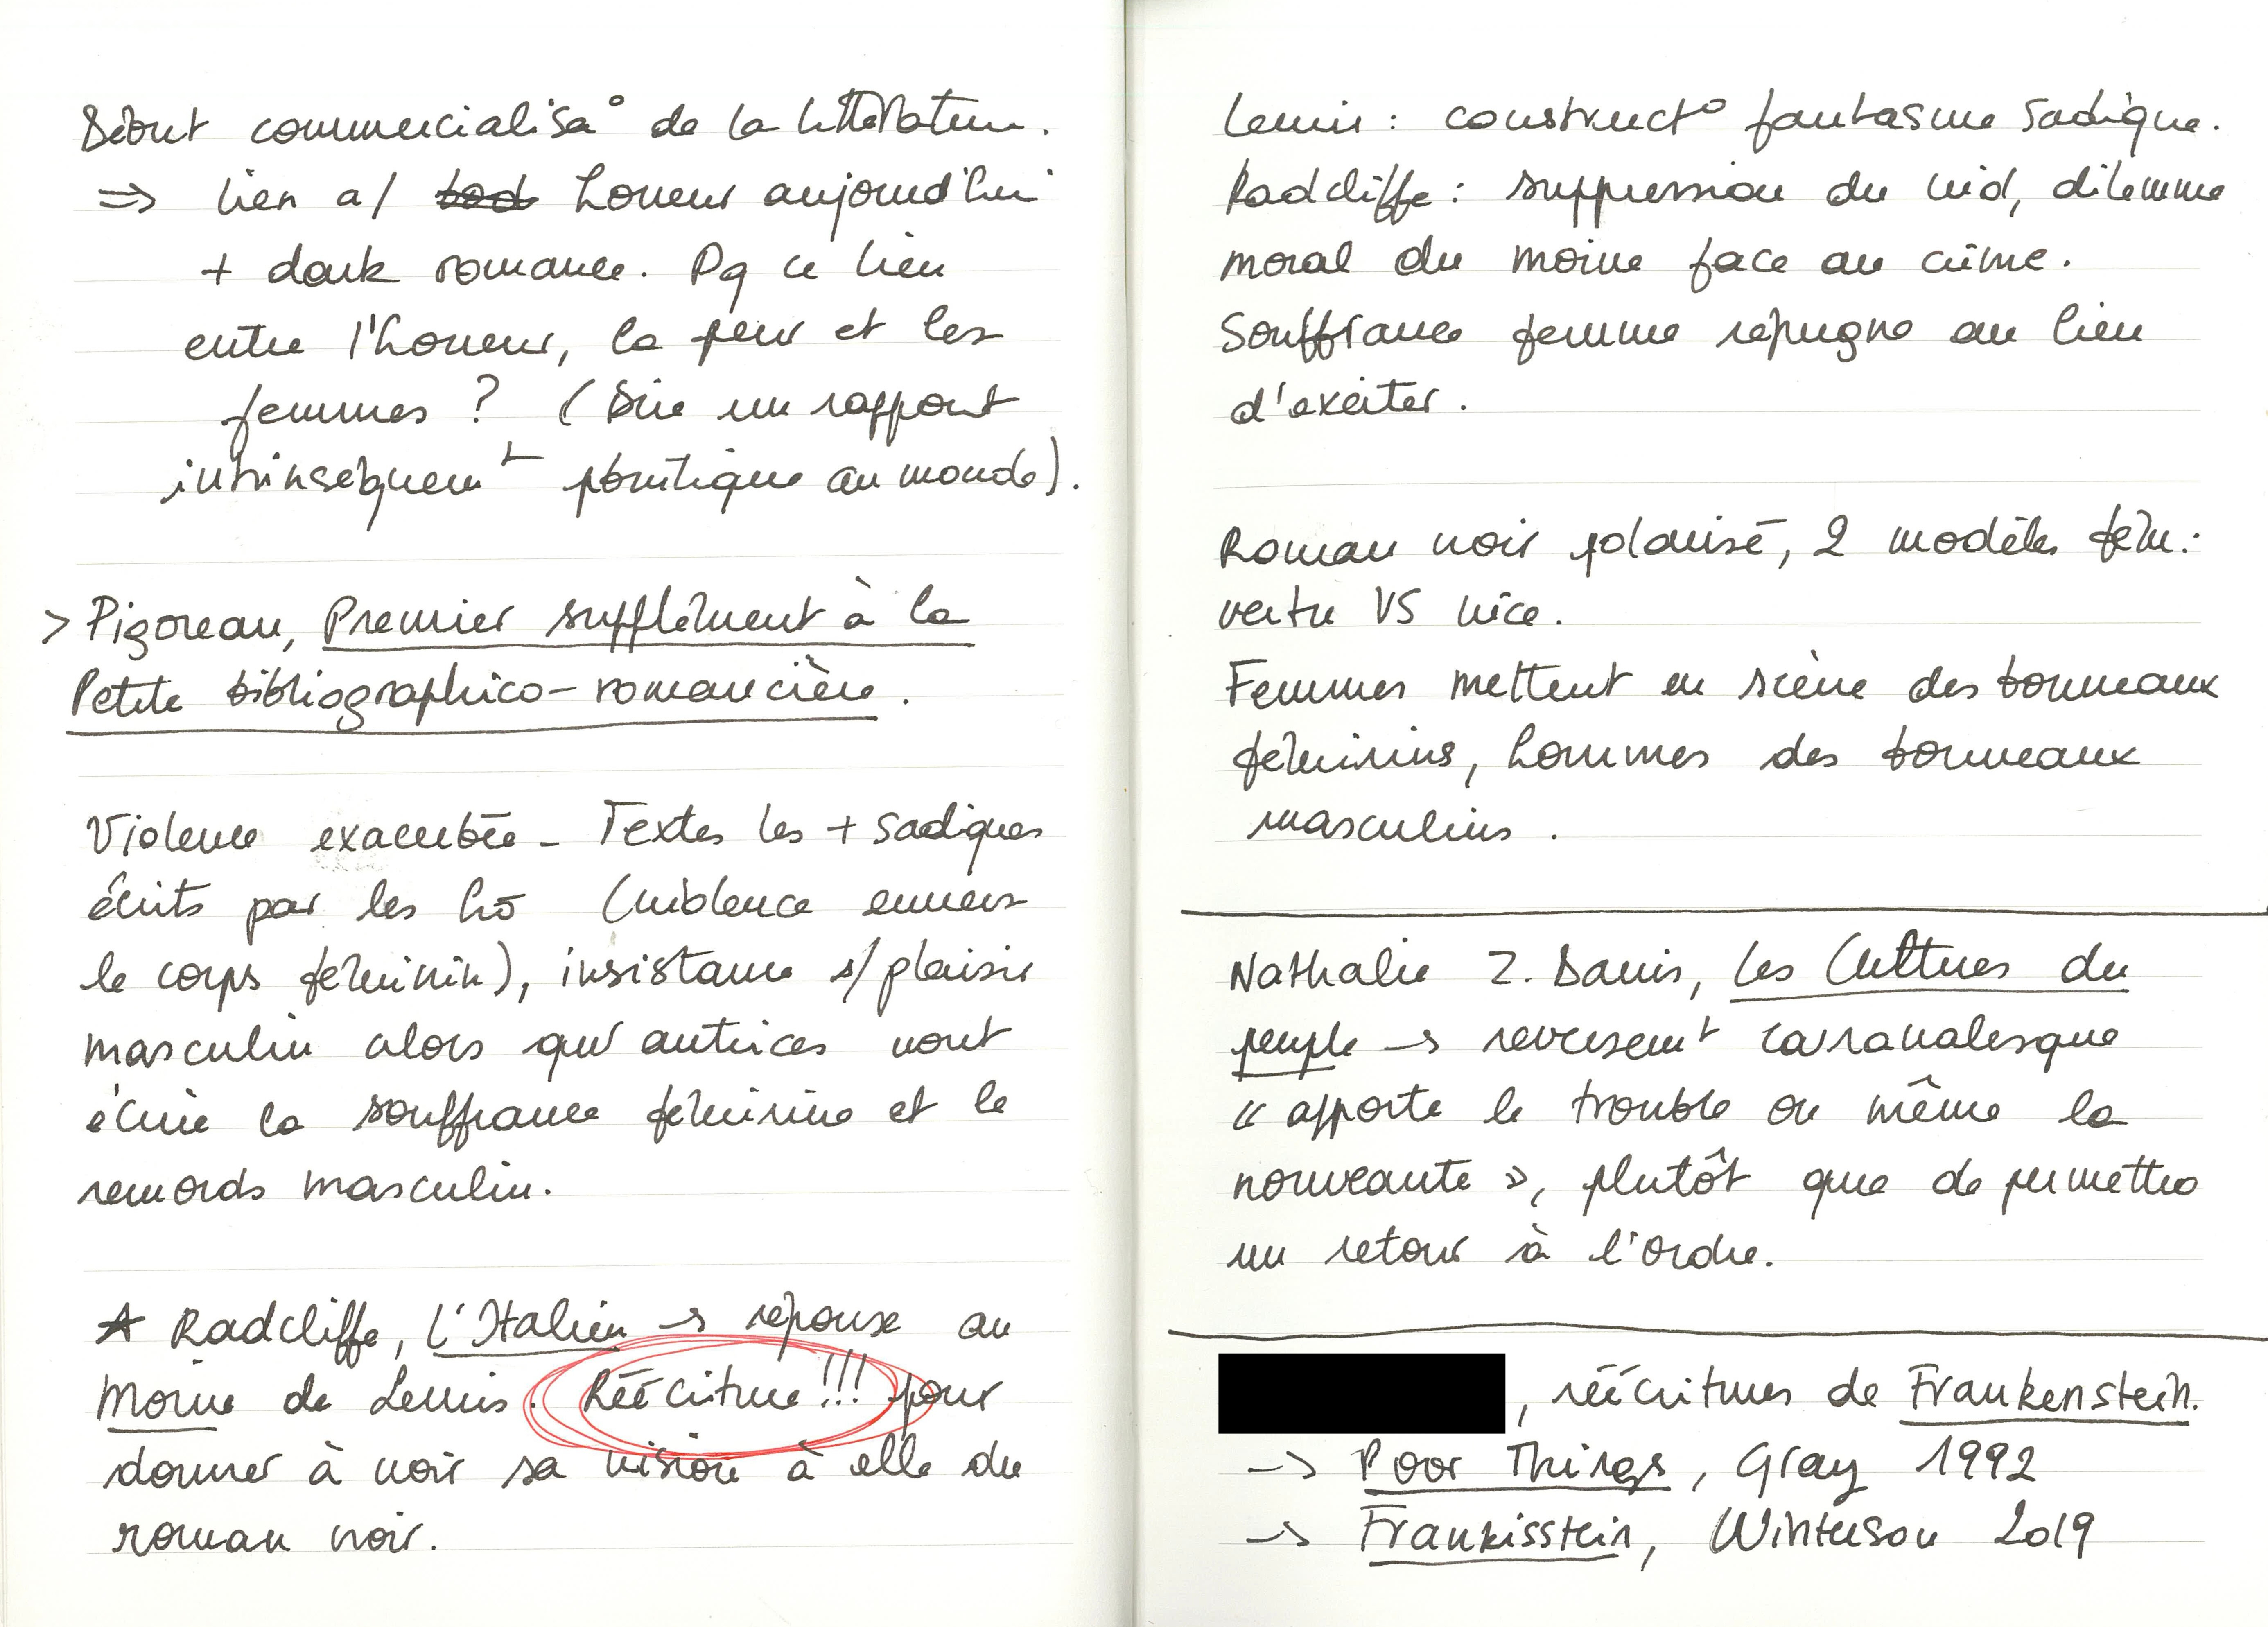 Début commercialisa° de la littérature.
⇒ lien a/ horreur aujourd'hui
+ dark romance. Pq ce lien
entre l'horreur, la peur et les
femmes ? (Dire un rapport
intrinsèquemt politique au monde).
> Pigoreau, Premier supplément à la
Petite bibliographico-romancière.
Violence exacerbée - Textes les + sadiques
écrits par les hō (violence envers
le corps féminin), insistance s/ plaisir
masculin alors qu'autrices vont
écrire la souffrance féminine et le
remords masculin.
Radcliffe, L'Italien → réponse au
Moine de Lewis. Réécriture !!! pour
donner à voir sa vision à elle du
roman noir.
Lewis : construct° fantasme sadique.
Radcliffe : suppression du viol, dilemme
moral du moine face au crime.
Souffrance femme répugne au lieu
d'exciter.
Roman noir polarisé, 2 modèles fém :
vertu VS vice.
Femmes mettent en scène des bourreaux
féminins, hommes des bourreaux
masculins.
Nathalie Z. Davis, Les Cultures du
peuple → reversemt carnavalesque
« apporte le trouble ou même la
nouveauté », plutôt que de permettre
un retour à l'ordre.
, réécritures de Frankenstein.
→ Poor Things, Gray 1992
→ Frankisstein, Winterson 2019